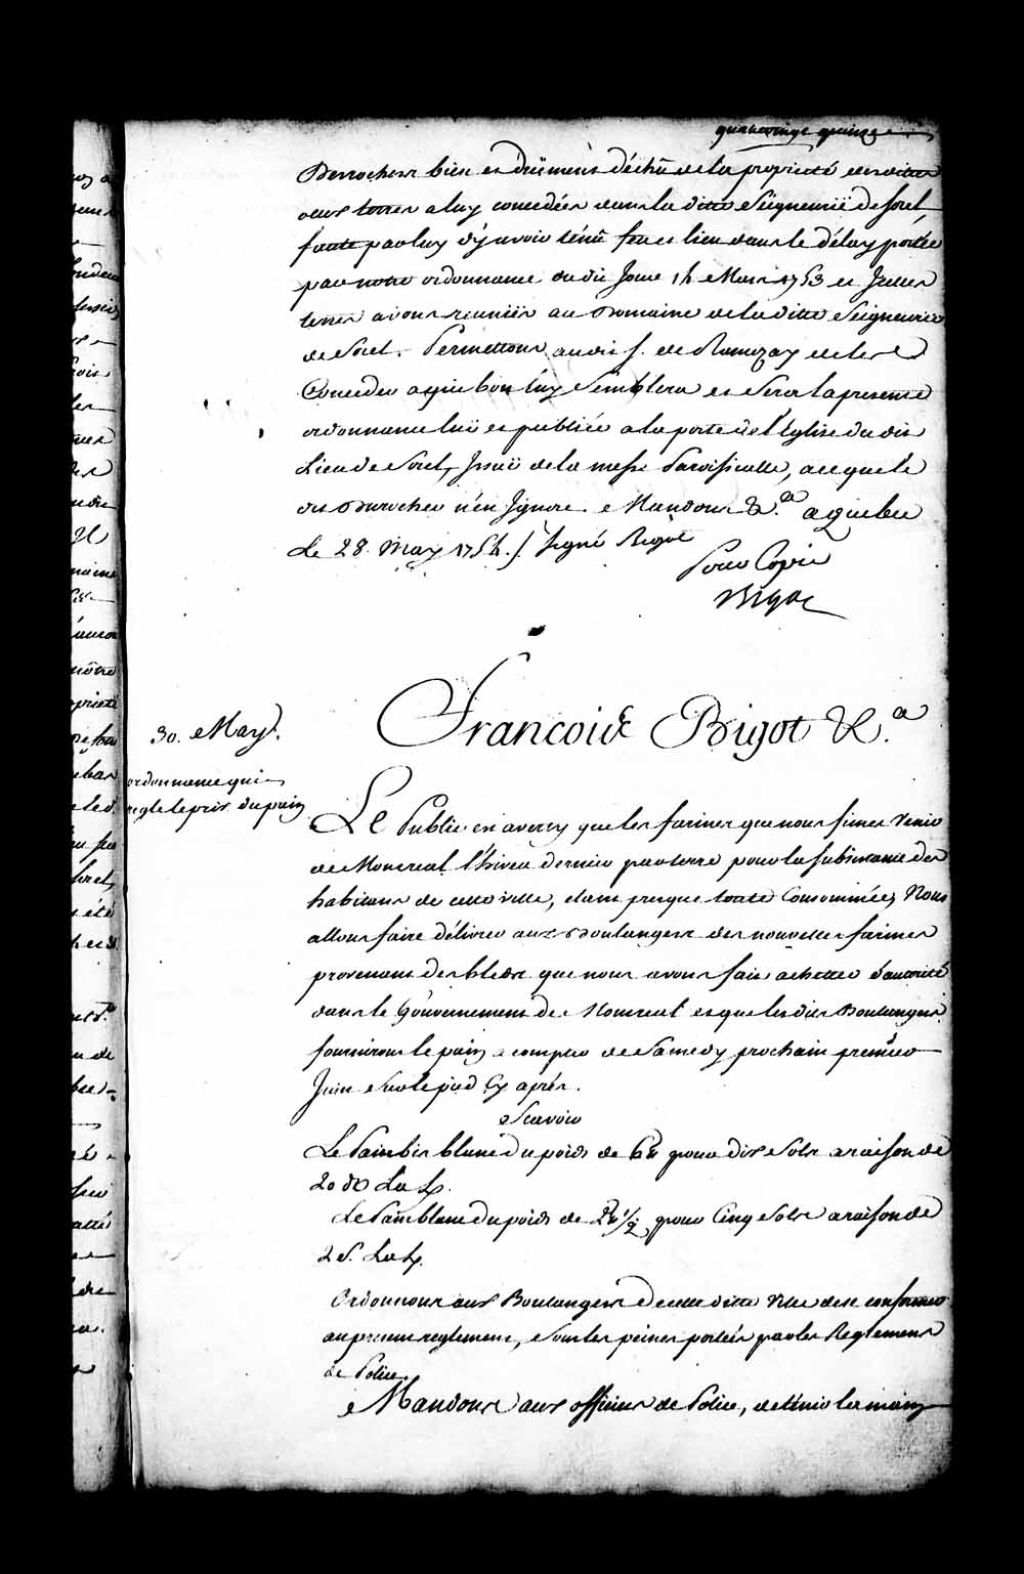 quatrevingt quinze
Desrochers bien et düement déchû de la propriété desdittes
deux terres a luy concedées dans la ditte Seigneurië de Sorel,
faute par luy d'y avoir ténû feu et lieu dans le délay portée
par notre ordonnance dudit Jour 1er Mars 1753 et Jcelles
terres avons reuniës au Domaine de la ditte Seigneurië
de Sorel. Permettons audit S. de Ramezay de les
Conceder a qui bon luy Semblera et Sera la presente
ordonnance luë et publiée a la porte de l'Eglise du dit
Lieu de Sorel, Jssuë de la messe Paroissialle, a ce que le
dit Durocher n'en Jgnore. Mandons &.a a Quebec
Le 28. May 1754./. Signé Bigot
Pour Copie
Bigot
30. May.
ordonnance qui
regle le prix du pain
Francois Bigot &.a
Le Public est averty que les farines que nous fimes Venir
de Montreal l'hiver dernier par terre pour la subsistance des
habitans de cette ville, etant presque toute Consommées, Nous
allons faire délivrer aux Boulangers des nouvelles farines
provenant des bleds que nous avons fait achetter d'autorité
dans le Gouvernement de Montreal et que lesdits Boulangers
fourniront le pain a compter de Samedy prochain premier
Juin Sur le pied Cy aprés.
Sçavoir
Le Pain bis blanc du poids de 6 lt pour dix Sols a raison de
20 d La L.
Le Pain blanc du poids de 2 lt 1/2 pour Cinq Sols a raison de
2 s. La L.
Ordonnons aux Boulangers de cette ditte Ville de se conformer
au present reglement, Sous les peines portées par les Reglemens
de Police.
Mandons aux officiers de Police, de tenir la main